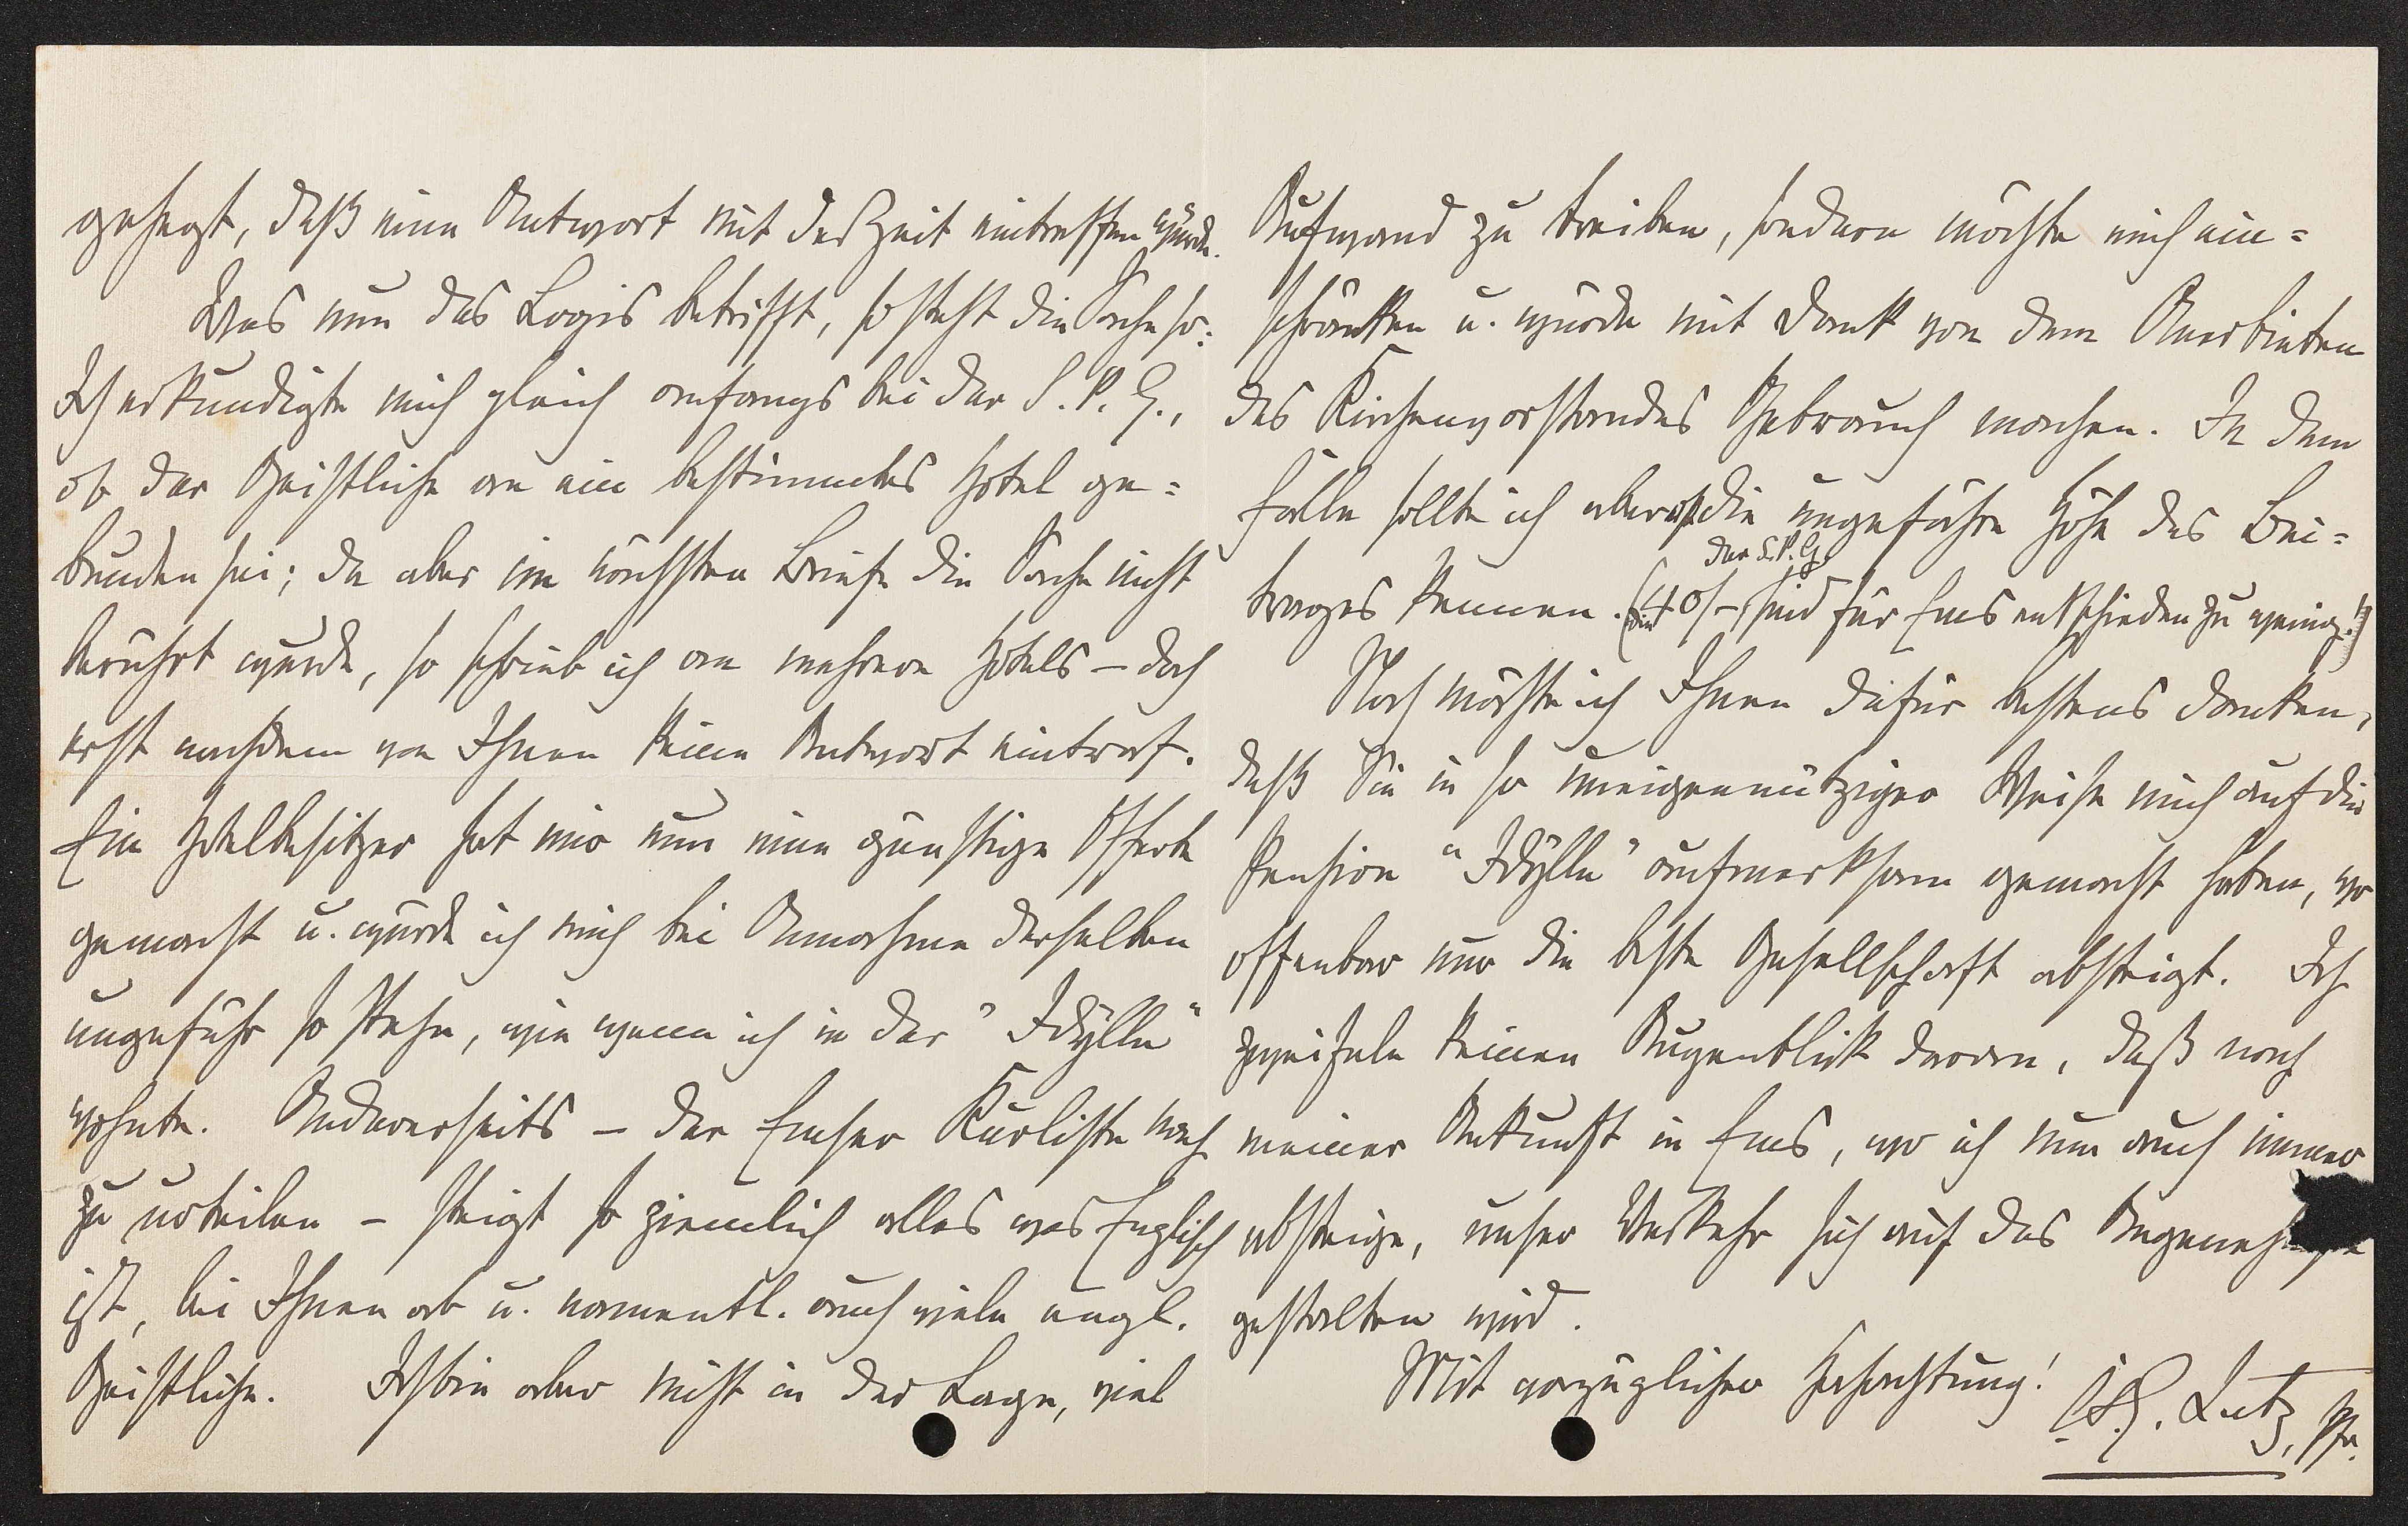 gehegt, daß eine Antwort mit der Zeit eintreffen würde.
Was nun das Logis betrifft, so steht die Sache so:
Ich erkundigte mich gleich anfangs bei der S. P. G.,
ob der Geistliche an ein bestimmtes Hotel ge=
bunden sei; da aber im nächsten Briefe die Sache nicht
berührt wurde, so schrieb ich an mehrere Hotels – doch
erst nachdem von Ihnen keine Antwort eintraf.
Ein Hotelbesitzer hat mir nun eine günstige Offerte
gemacht u. würde ich mich bei Annahme derselben
ungefähr so stehen, wie wenn ich in der "Idylle"
wohnte. Andererseits – der Emser Kurliste nach
zu urteilen – steigt so ziemlich alles was Englisch
ist, bei Ihnen ab u. namentl. auch viele engl.
Geistliche. Ich bin aber nicht in der Lage, viel
Aufwand zu treiben, sondern möchte mich ein=
schränken u. würde mit Dank von dem Anerbieten
des Kirchenvorstandes Gebrauch machen. In dem
Falle sollte ich aber die ungefähre Höhe des Bei=
der S. P. G.
trages kennen. (die 40/– sind für Ems entschieden zu wenig!)
Noch möchte ich Ihnen dafür bestens danken,
daß Sie in so uneigennütziger Weise mich auf die
Pension "Idylle" aufmerksam gemacht haben, wo
offenbar nur die beste Gesellschaft absteigt. Ich
zweifele keinen Augenblick daran, daß nach
meiner Ankunft in Ems, wo ich nun auch immer
absteige, unser Verkehr sich auf das Angenehmste
gestalten wird.
Mit vorzüglicher Hochachtung!
Lutz, Pfr.